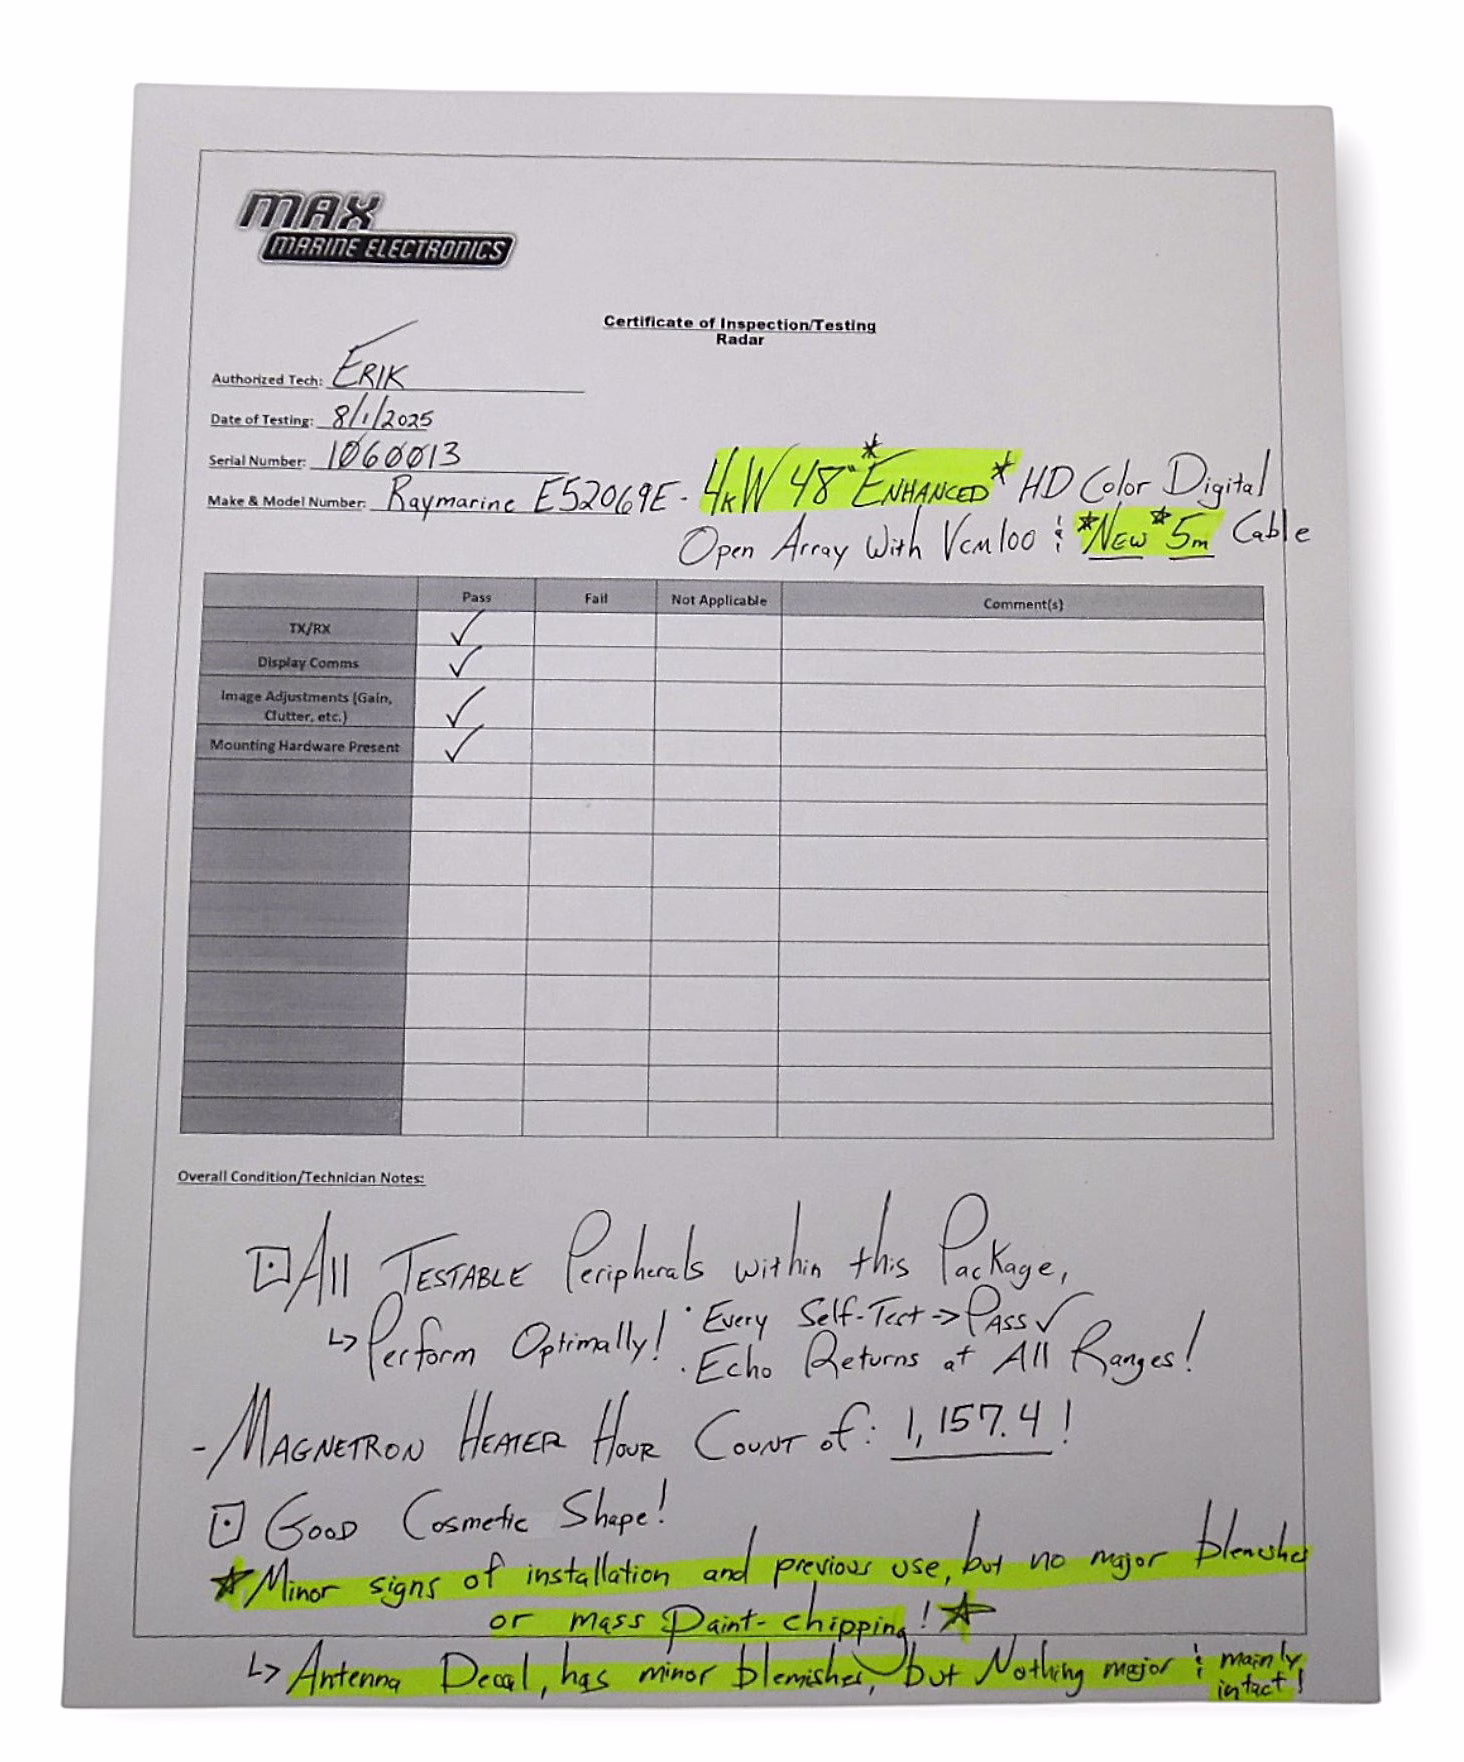 MAX
MARINE ELECTRONICS
Certificate of Inspection/Testing
Radar
Authorized Tech: ERIK
Date of Testing: 8/1/2025
Serial Number: 1060013
Make & Model Number: Raymarine E52069E - 4kW 48" *ENHANCED* HD Color Digital
Open Array With VCM100 & *NEW* 5m Cable
Pass Fail Not Applicable Comment(s)
TX/RX ✓
Display Comms ✓
Image Adjustments (Gain,
Clutter, etc.) ✓
Mounting Hardware Present ✓
Overall Condition/Technician Notes:
⊡ All TESTABLE Peripherals within this Package,
↳ Perform Optimally! · Every Self-Test -> PASS ✓
· Echo Returns at All Ranges!
- MAGNETRON HEATER HOUR COUNT of: 1,157.4!
⊡ GOOD Cosmetic Shape!
☆ Minor signs of installation and previous use, but no major blemishes
or mass Paint-chipping! ☆
↳ Antenna Decal, has minor blemishes, but Nothing major & mainly
intact!